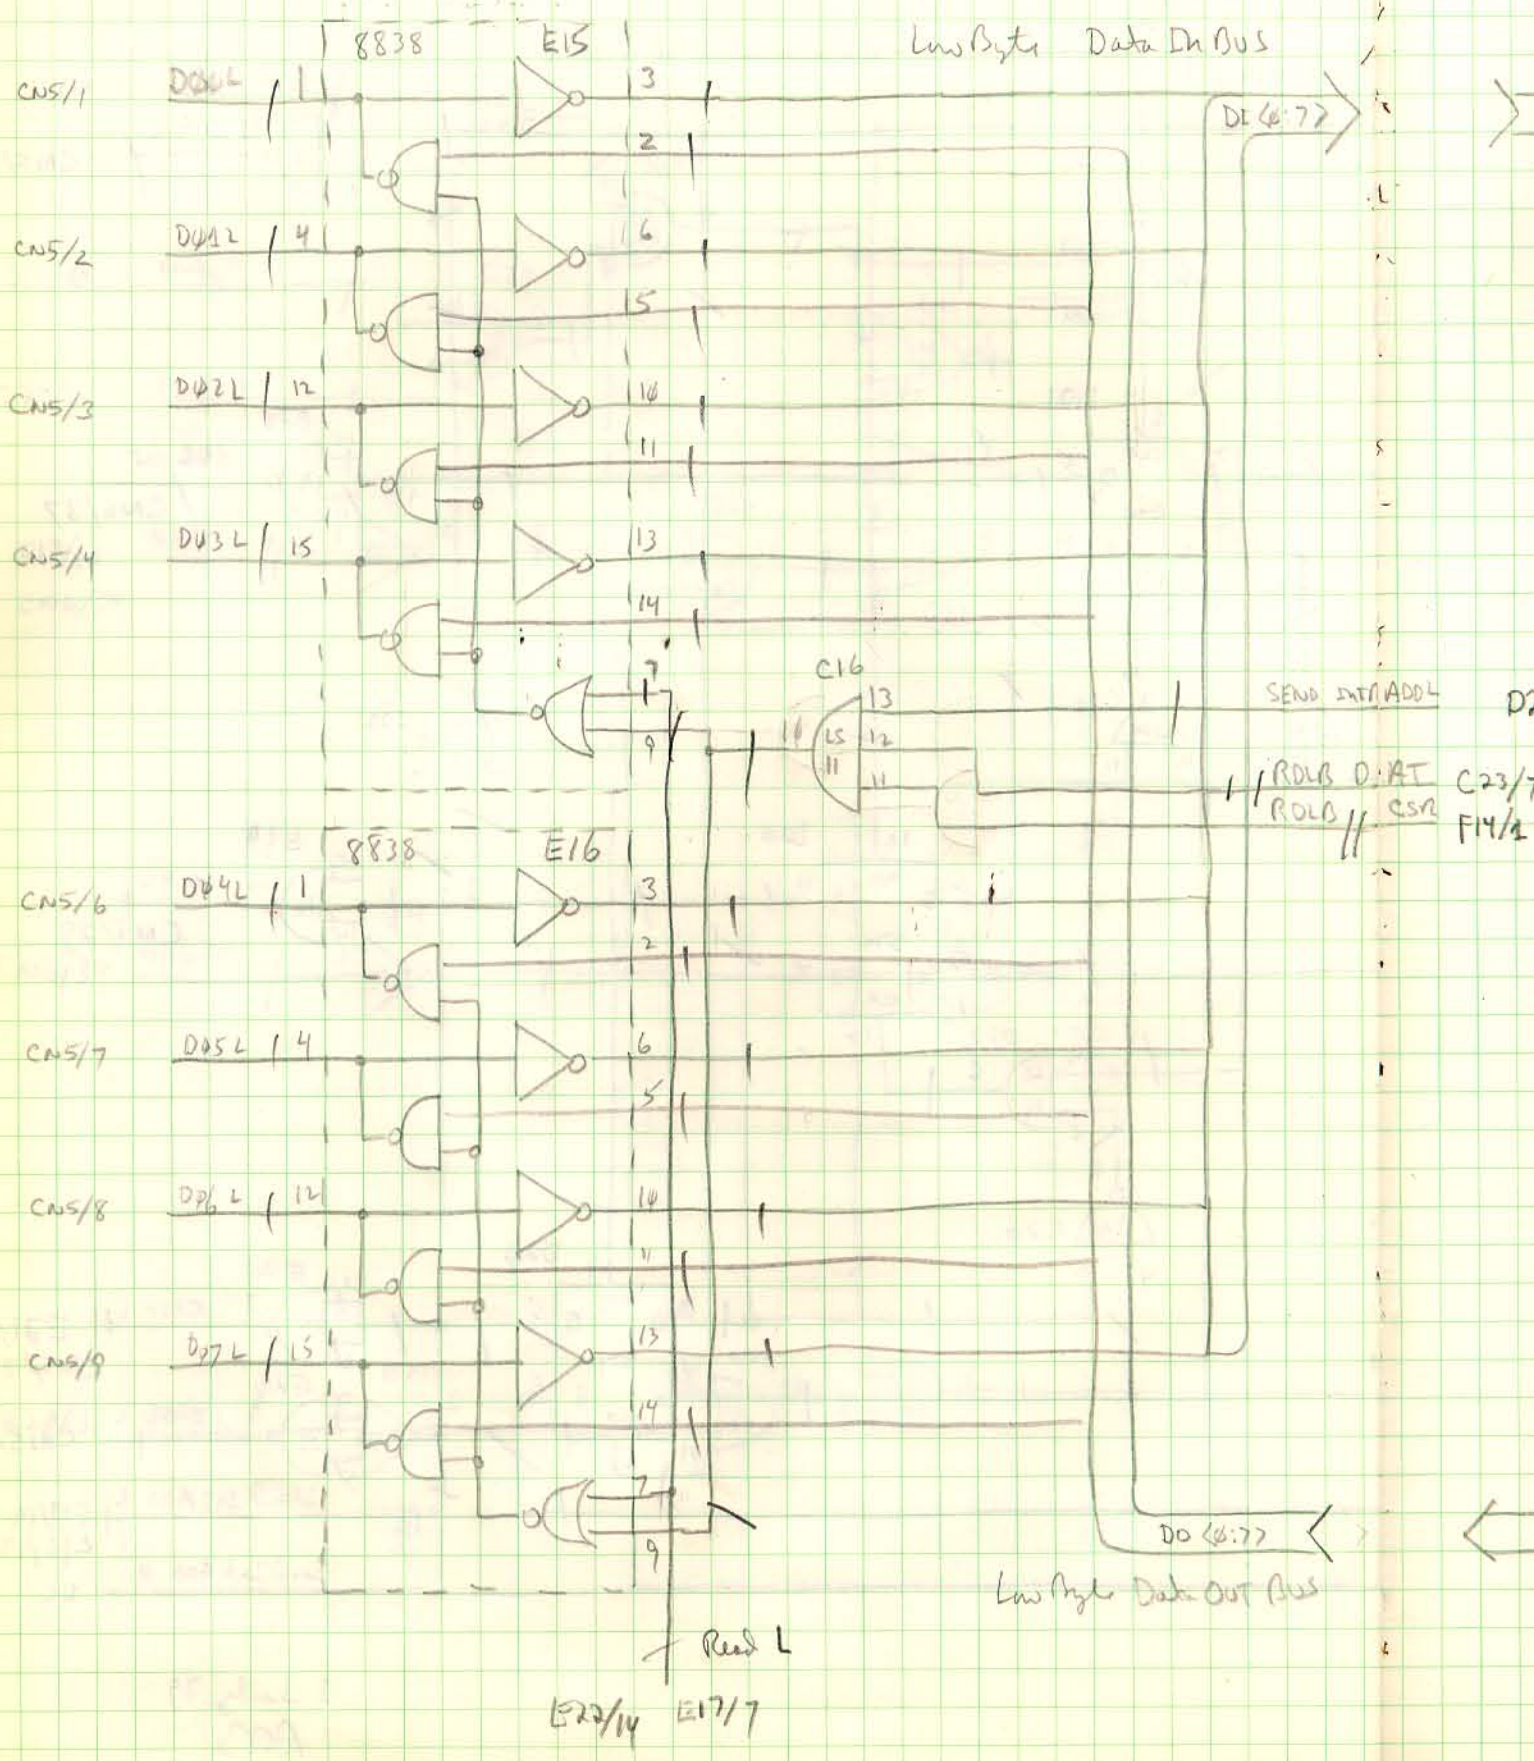 8838 E15 Low Byte Data In Bus
CN5/1 DØØL 1 3 DI<Ø:7>
2
CN5/2 DØ1L 4 6
5
CN5/3 DØ2L 12 1Ø
11
CN5/4 DØ3L 15 13
14
C16
7 13 SEND INTR ADDL
9 1Ø LS 12
11 11 RDLB DAT C23/7
RDLB CSR F14/1
8838 E16
CN5/6 DØ4L 1 3
2
CN5/7 DØ5L 4 6
5
CN5/8 DØ6L 12 1Ø
11
CN5/9 DØ7L 15 13
14
7
9 DO<Ø:7>
Low Byte Data OUT Bus
Read L
E22/14 E17/7